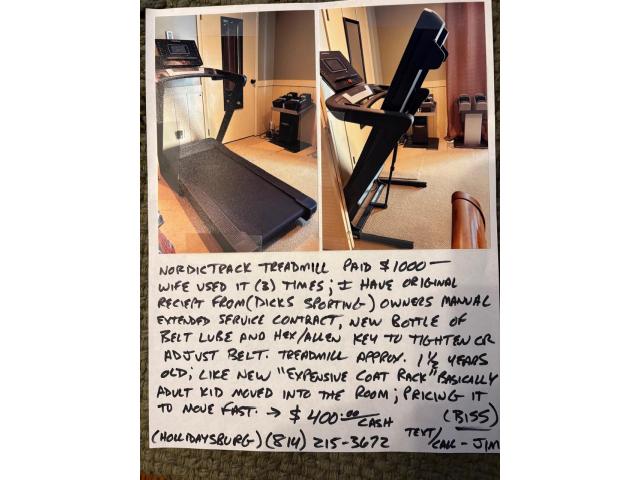 NORDICTRACK TREADMILL PAID $1000—
WIFE USED IT (3) TIMES; I HAVE ORIGINAL
RECIEPT FROM (DICKS SPORTING) OWNERS MANUAL
EXTENDED SERVICE CONTRACT, NEW BOTTLE OF
BELT LUBE AND HEX/ALLEN KEY TO TIGHTEN OR
ADJUST BELT. TREADMILL APPROX. 1½ YEARS
OLD; LIKE NEW "EXPENSIVE COAT RACK" BASICALLY
ADULT KID MOVED INTO THE ROOM; PRICING IT
TO MOVE FAST. → $400.00 CASH (BISS)
(HOLLIDAYSBURG) (814) 215-3672 TEXT/CALL - JIM